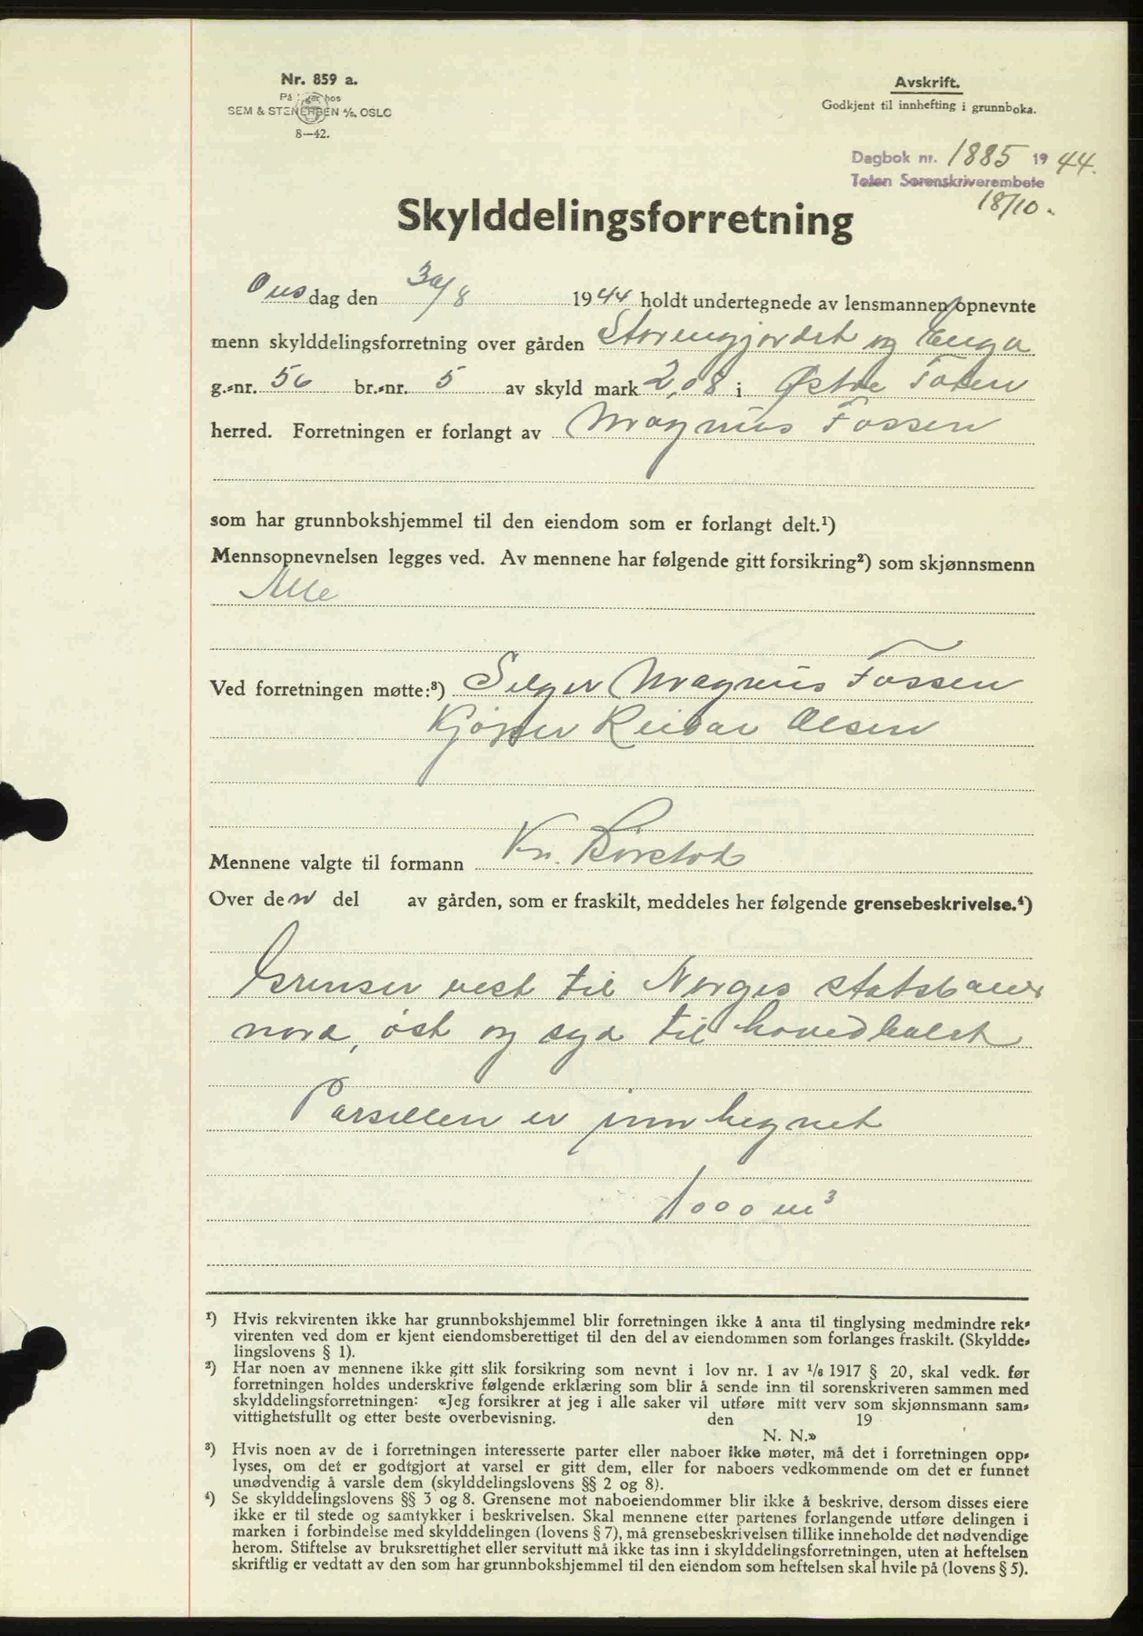 Nr. 859 a.
På lager hos
SEM & STENERSEN A/S, OSLO
8—42.
Avskrift.
Godkjent til innhefting i grunnboka.
Dagbok nr. 1885 1944.
Toten Sorenskriverembete
18/10.
Skylddelingsforretning
Onsdag den 30/8 1944 holdt undertegnede av lensmannen opnevnte
menn skylddelingsforretning over gården Storengjordet og Enga
g.-nr. 56 br.-nr. 5 av skyld mark 2,08 i Østre Toten
herred. Forretningen er forlangt av Magnus Fossen
som har grunnbokshjemmel til den eiendom som er forlangt delt.¹)
Mennsopnevnelsen legges ved. Av mennene har følgende gitt forsikring²) som skjønnsmenn
Alle
Ved forretningen møtte:³) Selger Magnus Fossen
Kjøper Reidar Olsen
Mennene valgte til formann Kr.
Over den del av gården, som er fraskilt, meddeles her følgende grensebeskrivelse.⁴)
Grenser vest til Norges statsbaner
nord, øst og syd til hovedbølet
Parsellen er innhegnet
1000 m³
¹) Hvis rekvirenten ikke har grunnbokshjemmel blir forretningen ikke å anta til tinglysing medmindre rek-
virenten ved dom er kjent eiendomsberettiget til den del av eiendommen som forlanges fraskilt. (Skyldde-
lingslovens § 1).
²) Har noen av mennene ikke gitt slik forsikring som nevnt i lov nr. 1 av 1/6 1917 § 20, skal vedk. før
forretningen holdes underskrive følgende erklæring som blir å sende inn til sorenskriveren sammen med
skylddelingsforretningen: «Jeg forsikrer at jeg i alle saker vil utføre mitt verv som skjønnsmann sam-
vittighetsfullt og etter beste overbevisning. den 19
N. N.»
³) Hvis noen av de i forretningen interesserte parter eller naboer ikke møter, må det i forretningen opp-
lyses, om det er godtgjort at varsel er gitt dem, eller for naboers vedkommende om det er funnet
unødvendig å varsle dem (skylddelingslovens §§ 2 og 8).
⁴) Se skylddelingslovens §§ 3 og 8. Grensene mot naboeiendommer blir ikke å beskrive, dersom disses eiere
ikke er til stede og samtykker i beskrivelsen. Skal mennene etter partenes forlangende utføre delingen i
marken i forbindelse med skylddelingen (lovens § 7), må grensebeskrivelsen tillike inneholde det nødvendige
herom. Stiftelse av bruksrettighet eller servitutt må ikke tas inn i skylddelingsforretningen, uten at heftelsen
skriftlig er vedtatt av den som har grunnbokshjemmel til den eiendom som heftelsen skal hvile på (lovens § 5).